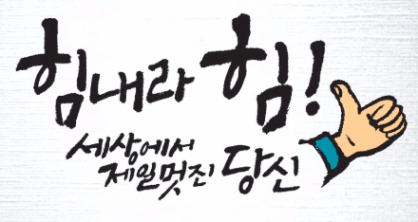 힘내라 힘!
세상에서
제일멋진 당신